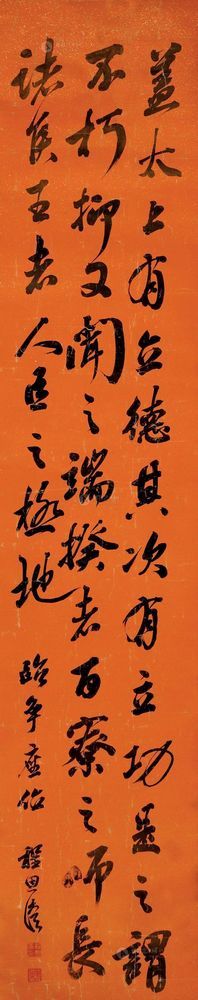 盖太上有立德其次有立功是之謂
不朽抑又聞之端揆者百寮之師長
諸侯王者人臣之極地
臨争座位